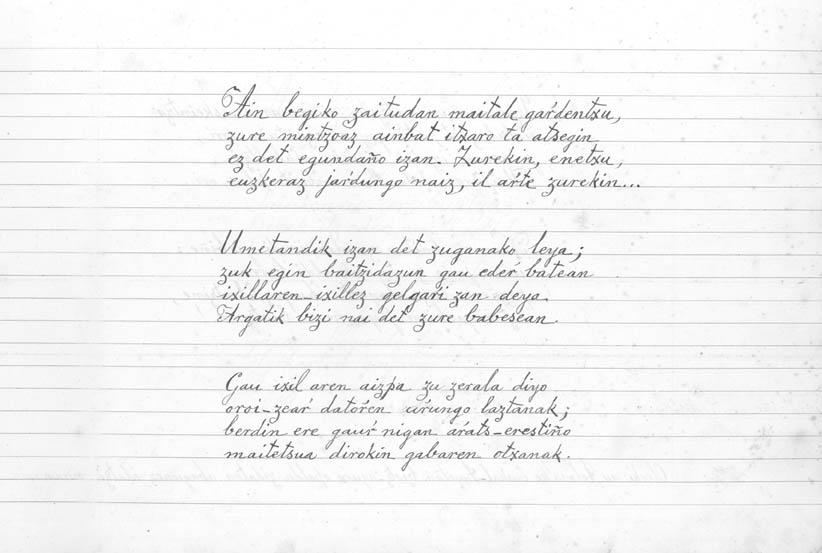 Ain begiko zaitudan maitale gaŕdentxu,
zure mintzoaz ainbat itxaro ta atsegin
ez det egundaño izan. Zurekin, enetxu,
euzkeraz jaŕdungo naiz, il aŕte zurekin...
Umetandik izan det zuganako leya;
zuk egin baitzidazun gau edeŕ batean
ixillaren-ixillez gelgaŕi zan deya.
Argatik bizi nai det zure babesean.
Gau ixil aren aizpa zu zerala diyo
oroi-zeaŕ datoŕen uŕungo laztanak;
berdin ere gauŕ nigan aŕats-erestiño
maitetsua dirokin gabaren otxanak.